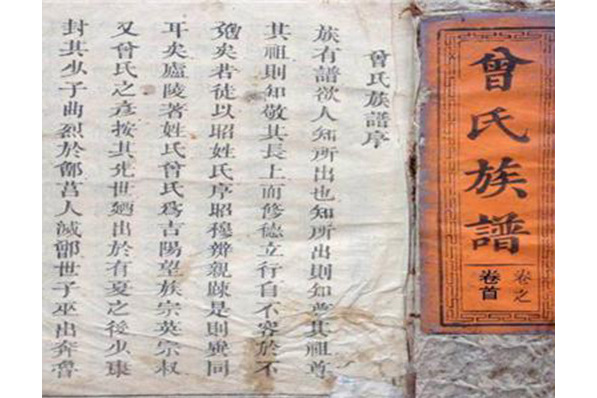 曾氏族譜
卷之
卷首
曾氏族譜序
族有譜欲人知所出也知所出則知尊其祖尊
其祖則知敬其長上而修德立行自不容於不
矣若徒以昭姓氏序昭穆辨親踈是則異同
耳矣廬陵著姓氏曾氏爲吉陽望族宗英宗叔
又曾氏之彥按其先世廼出於有夏之後少康
封其少子曲烈於鄫莒人滅鄫世子巫出奔魯